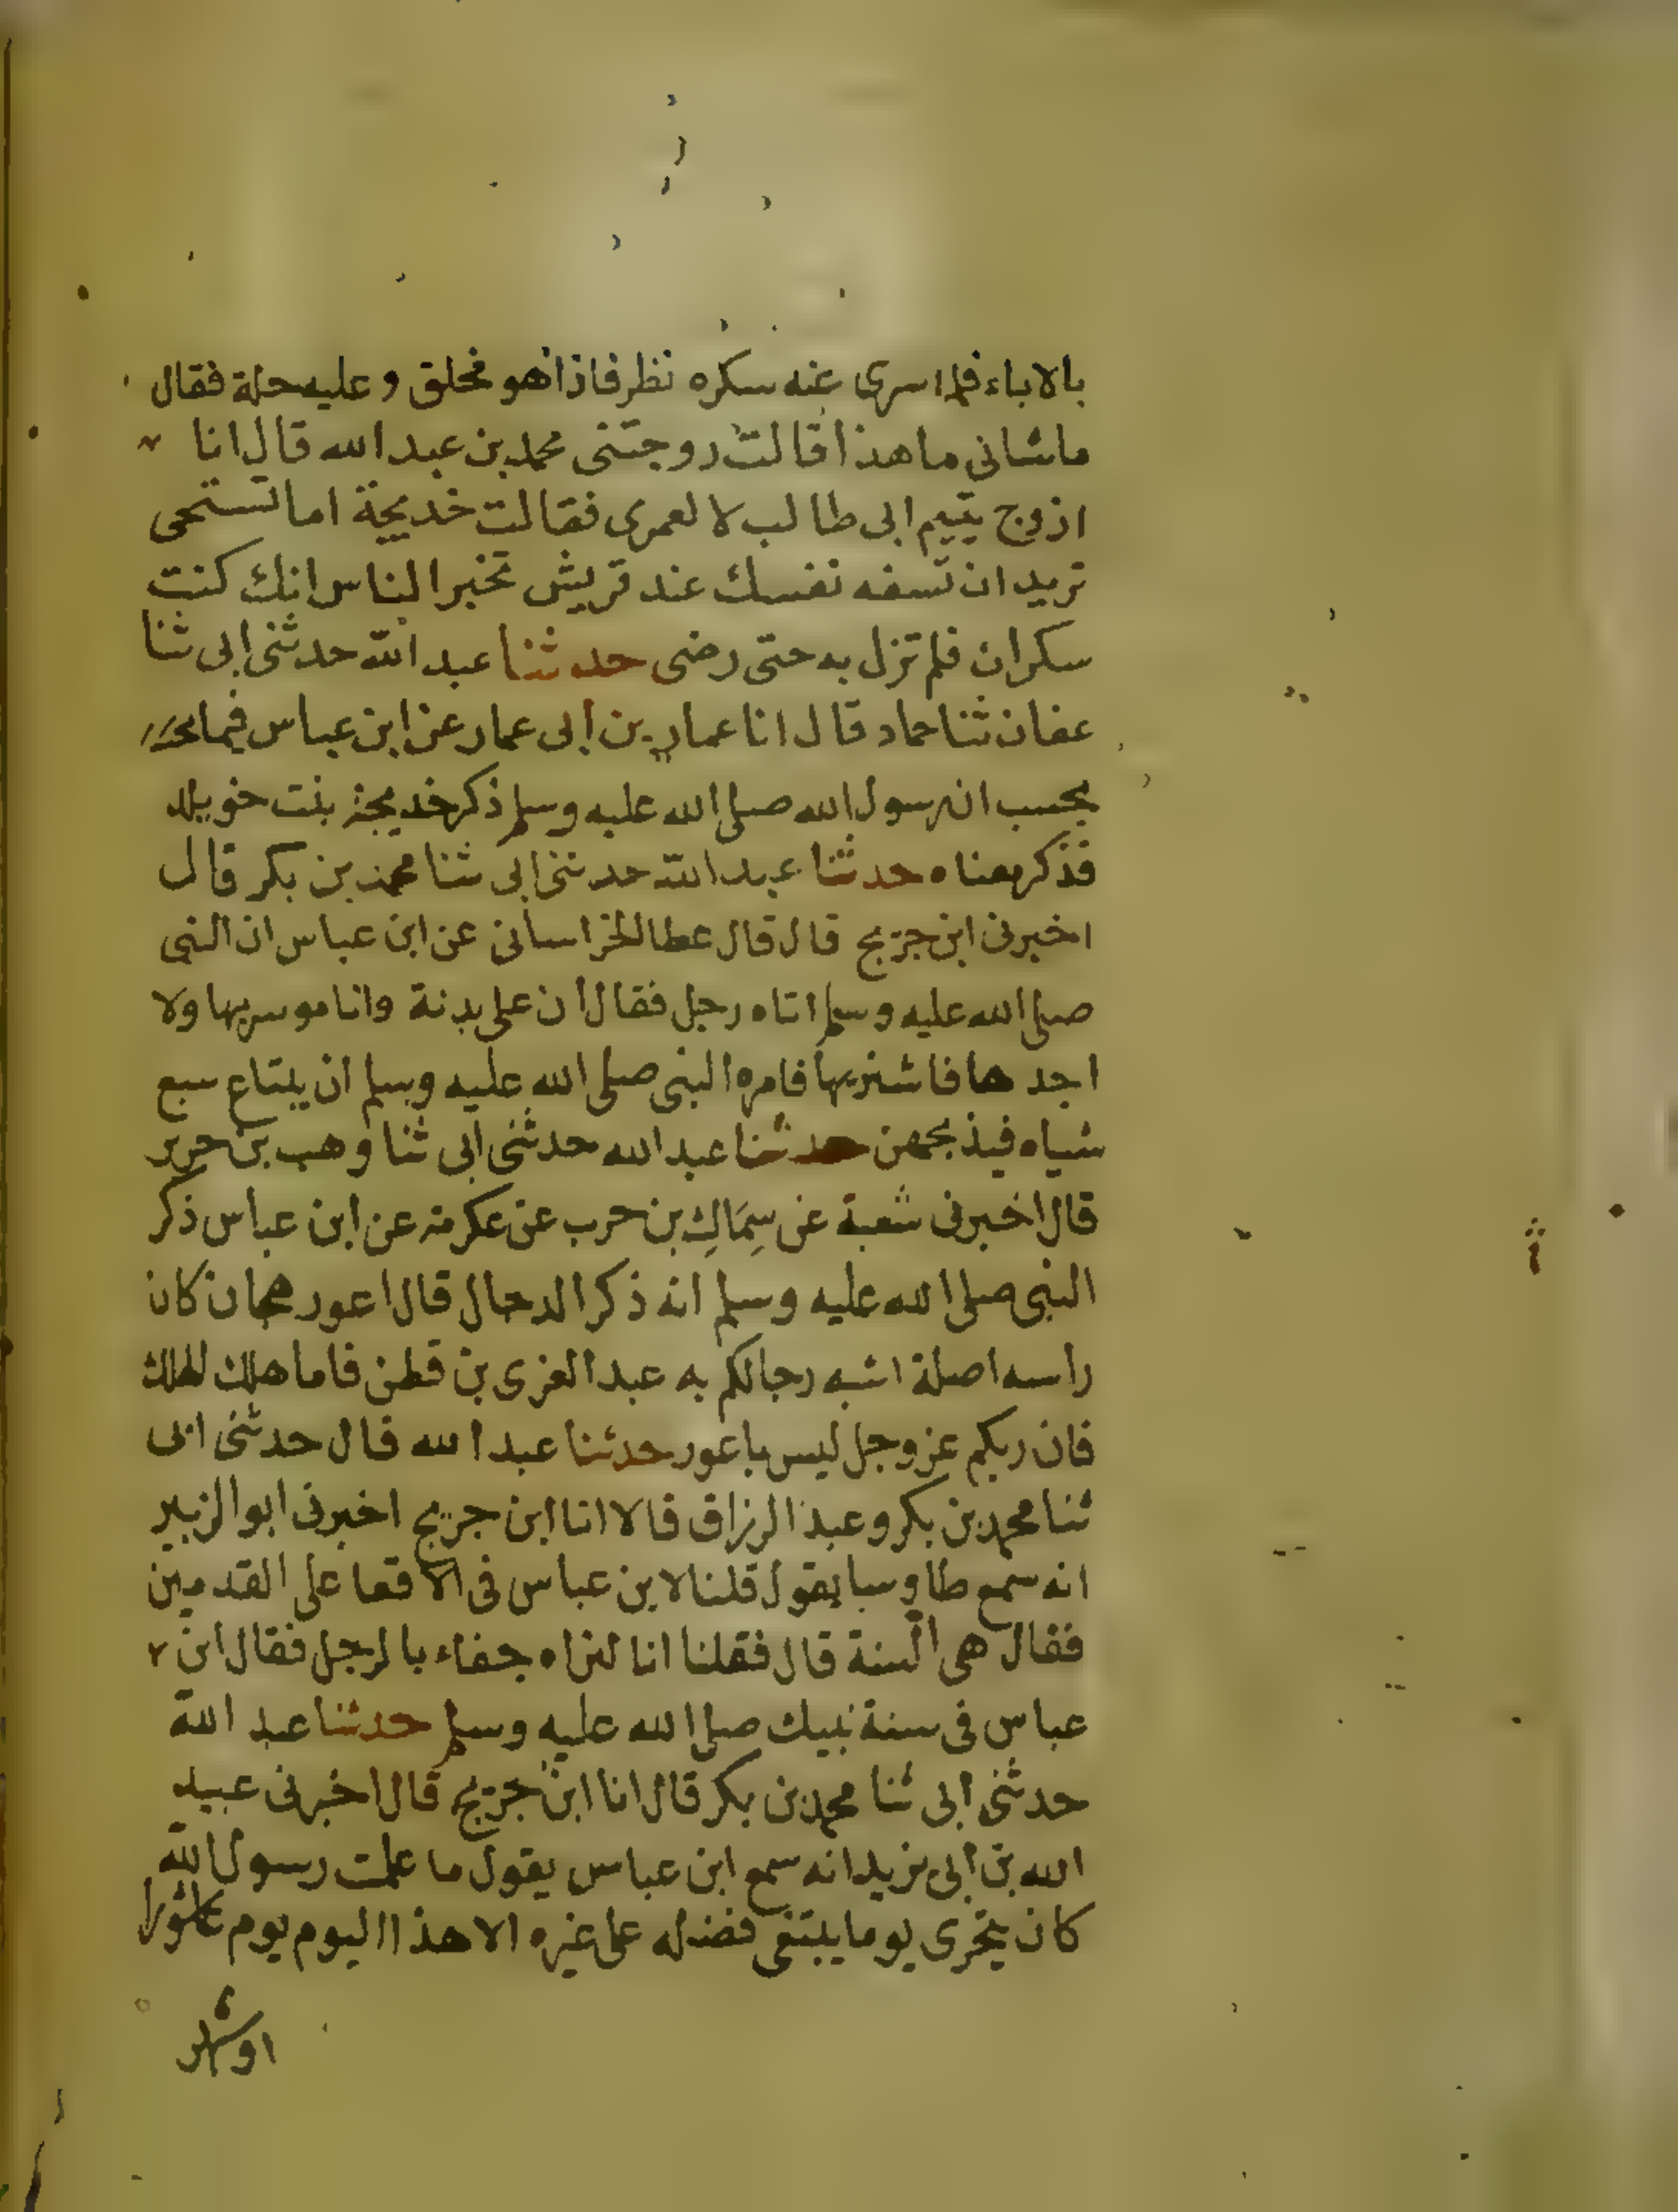 بالاباء فلما سرى عنه سكره نظر فاذا هو مخلق وعليه حلة فقال
ما شانى ما هذا قالت زوجتنى محمد بن عبد الله قال انا
ازوج يتيم ابى طالب لا لعمرى فقالت خديجة اما تستحى
تريد ان تسفه نفسك عند قريش تخبر الناس انك كنت
سكران فلم تزل به حتى رضى حدثنا عبد الله حدثنى ابى ثنا
عفان ثنا حماد قال انا عمار بن ابى عمار عن ابن عباس فيما
يحسب ان رسول الله صلى الله عليه وسلم ذكر خديجة بنت خويلد
فذكر معناه حدثنا عبد الله حدثنى ابى ثنا محمد بن بكر قال
اخبرنى ابن جريج قال قال عطا الخراسانى عن ابن عباس ان النبى
صلى الله عليه وسلم اتاه رجل فقال ان على بدنة وانا موسر بها ولا
اجدها فاشتريها فامره النبى صلى الله عليه وسلم ان يبتاع سبع
شياه فيذبحهن حدثنا عبد الله حدثنى ابى ثنا وهب بن جرير
قال اخبرنى شعبة عن سِمَاكِ بن حرب عن عكرمة عن ابن عباس ذكر
النبى صلى الله عليه وسلم انه ذكر الدجال قال اعور هجان كان
راسه اصلة اشبه رجالكم به عبد العزى بن قطن فاما هلك الهلك
فان ربكم عز وجل ليس باعور حدثنا عبد الله قال حدثنى ابى
ثنا محمد بن بكر وعبد الرزاق قالا انا ابن جريج اخبرنى ابو الزبير
انه سمع طاوسا يقول قلنا لابن عباس فى الاقعا على القدمين
فقال هى السنة قال فقلنا انا لنراه جفاء بالرجل فقال ابن
عباس فى سنة نبيك صلى الله عليه وسلم حدثنا عبد الله
حدثنى ابى ثنا محمد بن بكر قال انا ابن جريج قال اخبرنى عبيد
الله بن ابى يزيد انه سمع ابن عباس يقول ما علمت رسول الله
كان يتحرى يوما يبتغى فضله على غيره الا هذا اليوم يوم عاشورا